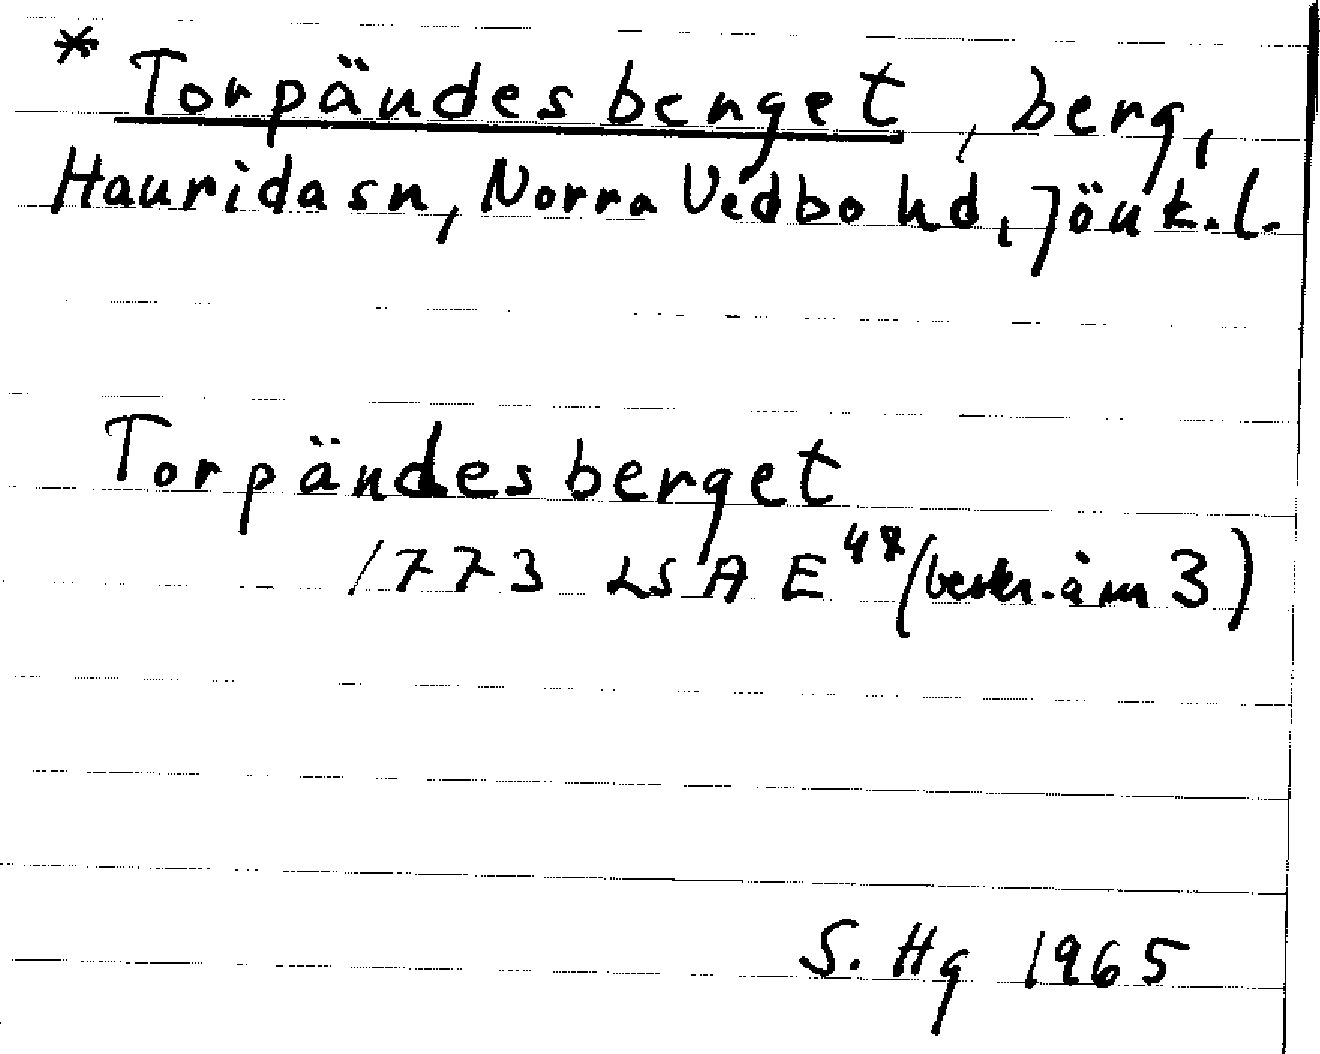 * Torpändesberget, berg,
Haurida sn, Norra Vedbo hd, Jönk. l.
Torpändesberget
1773 LSA E 47 (beskr. åm 3)
S. Hg 1965